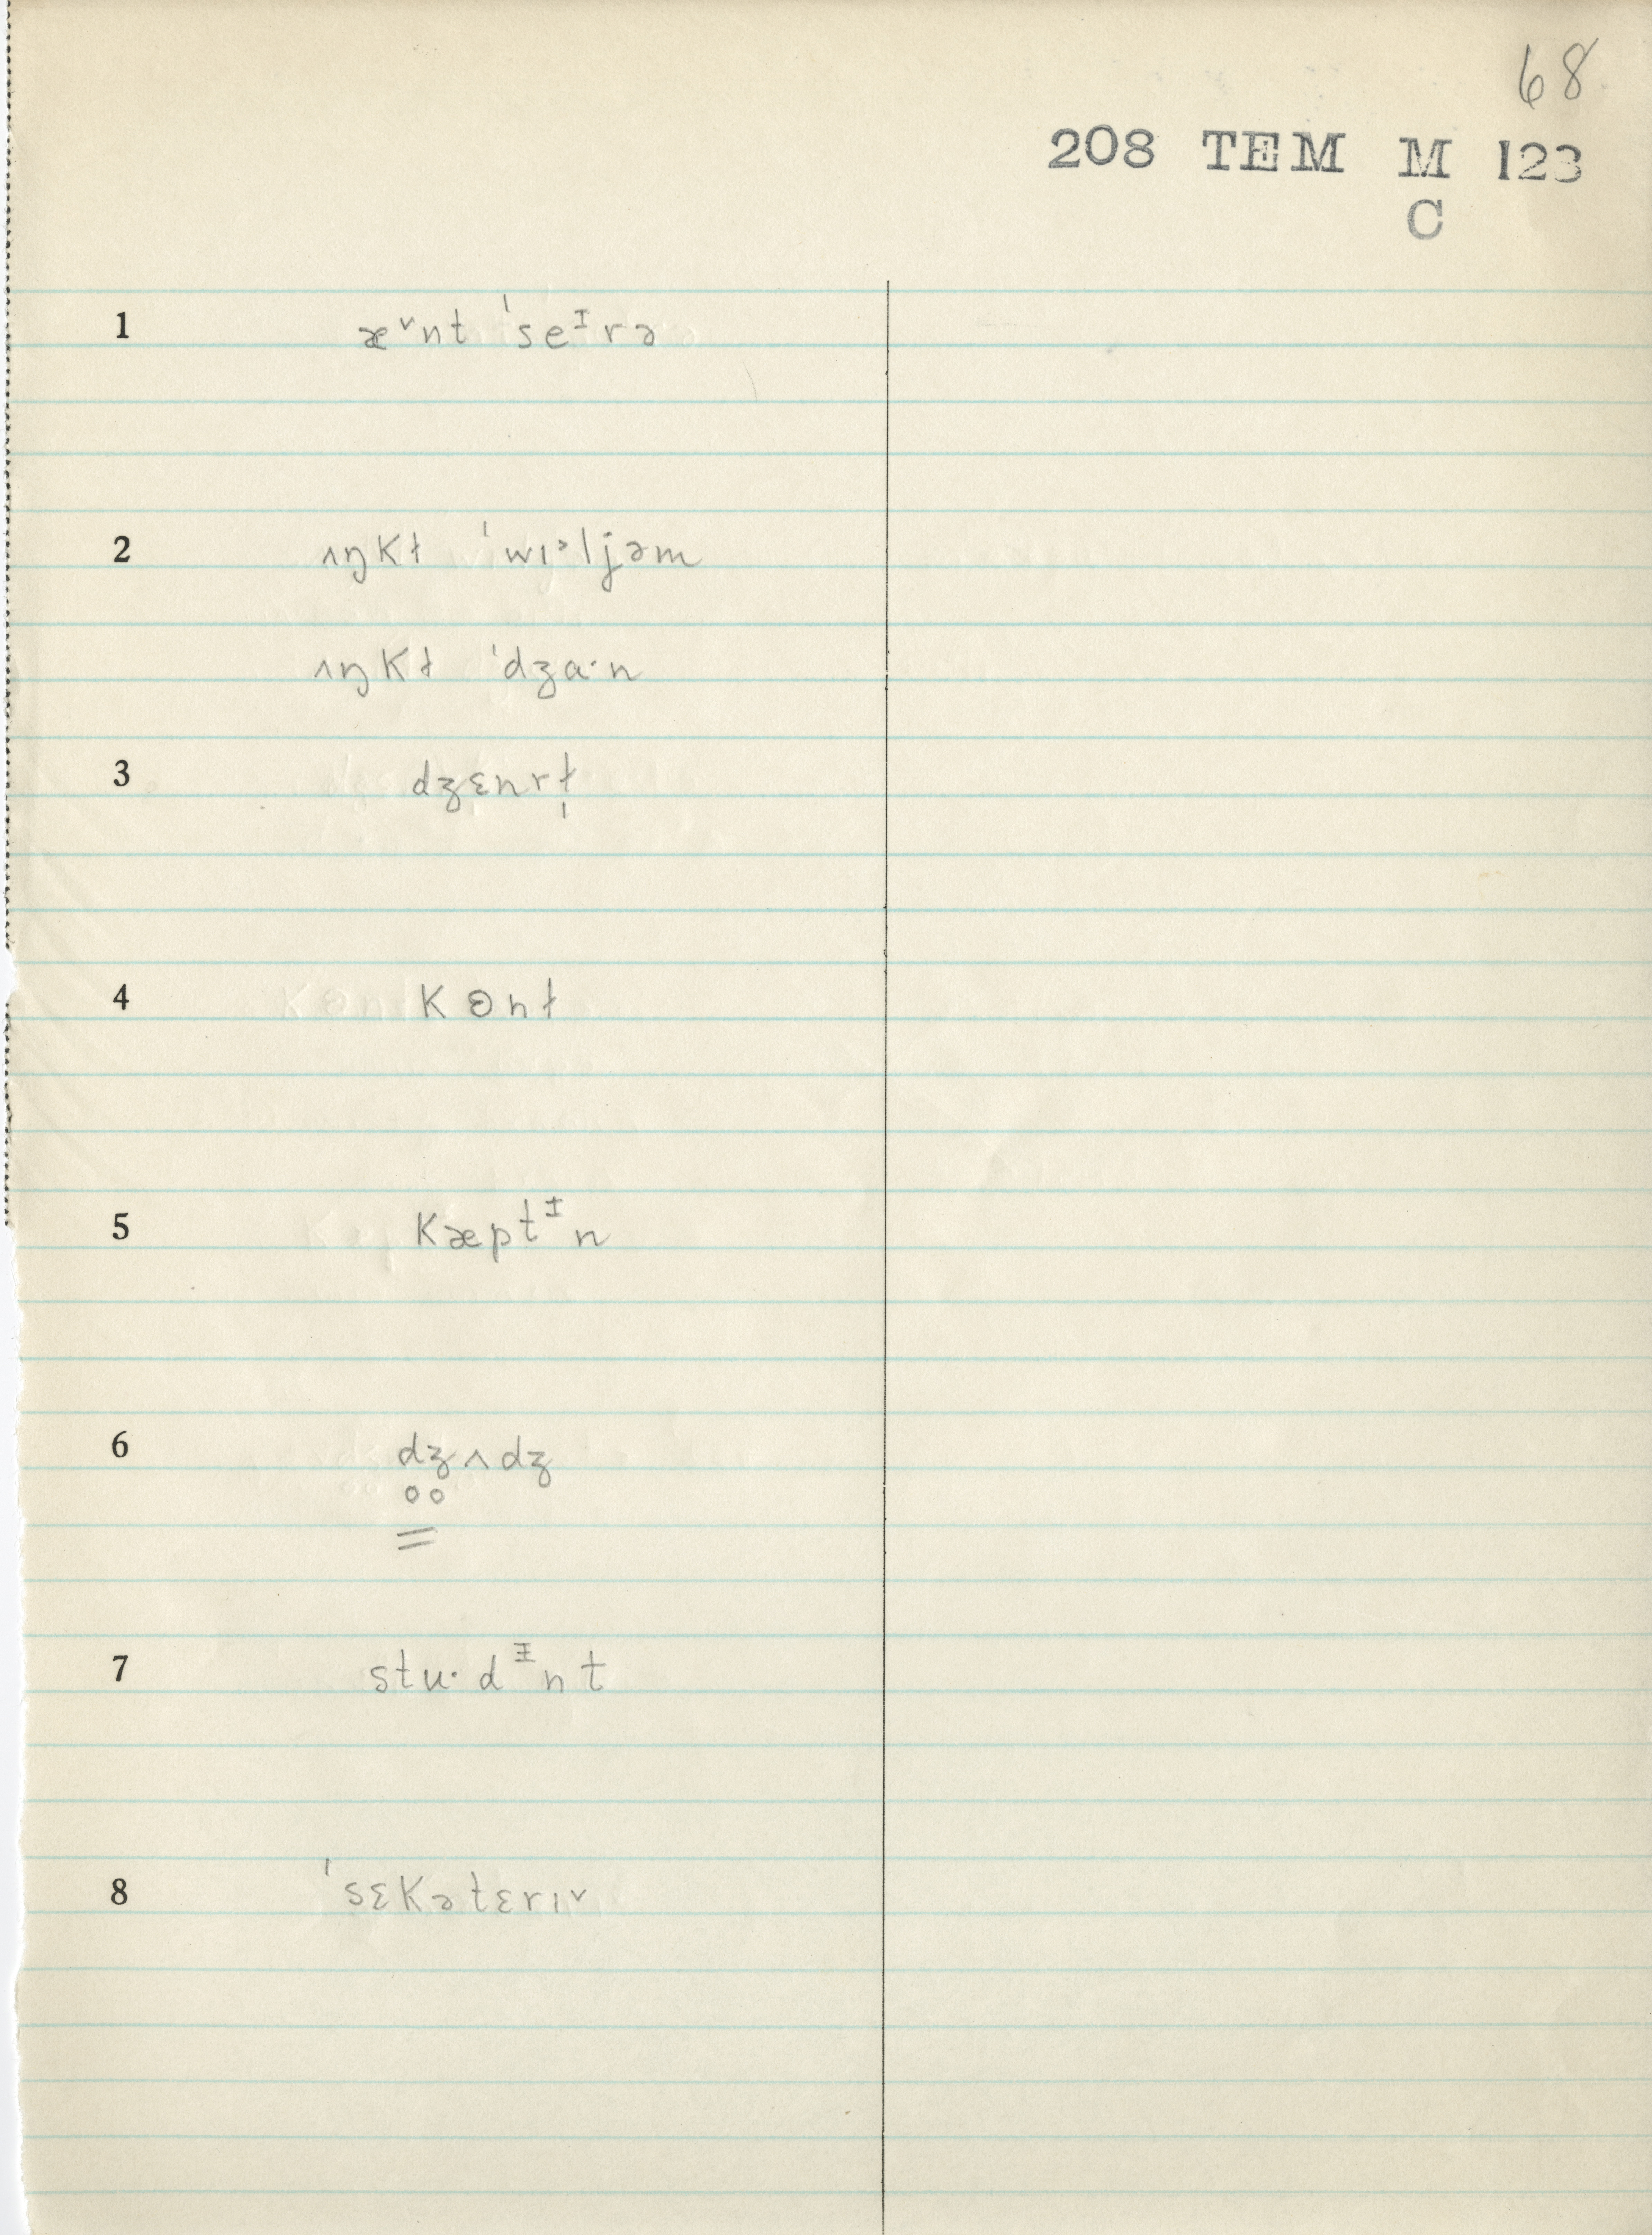 68
208 TEM M 123
C
1 æ˅nt ˈseᶦrə
2 ʌŋkɫ ˈwɪᵊljəm
ʌŋkɫ ˈdʒɑ·n
3 dʒɛnrɫ̩
4 kɵnɫ
5 kæptᶧn
6 d̥ʒ̥ʌdʒ
=
7 stu·dᶧnt
8 ˈsɛkətɛrɪ˅